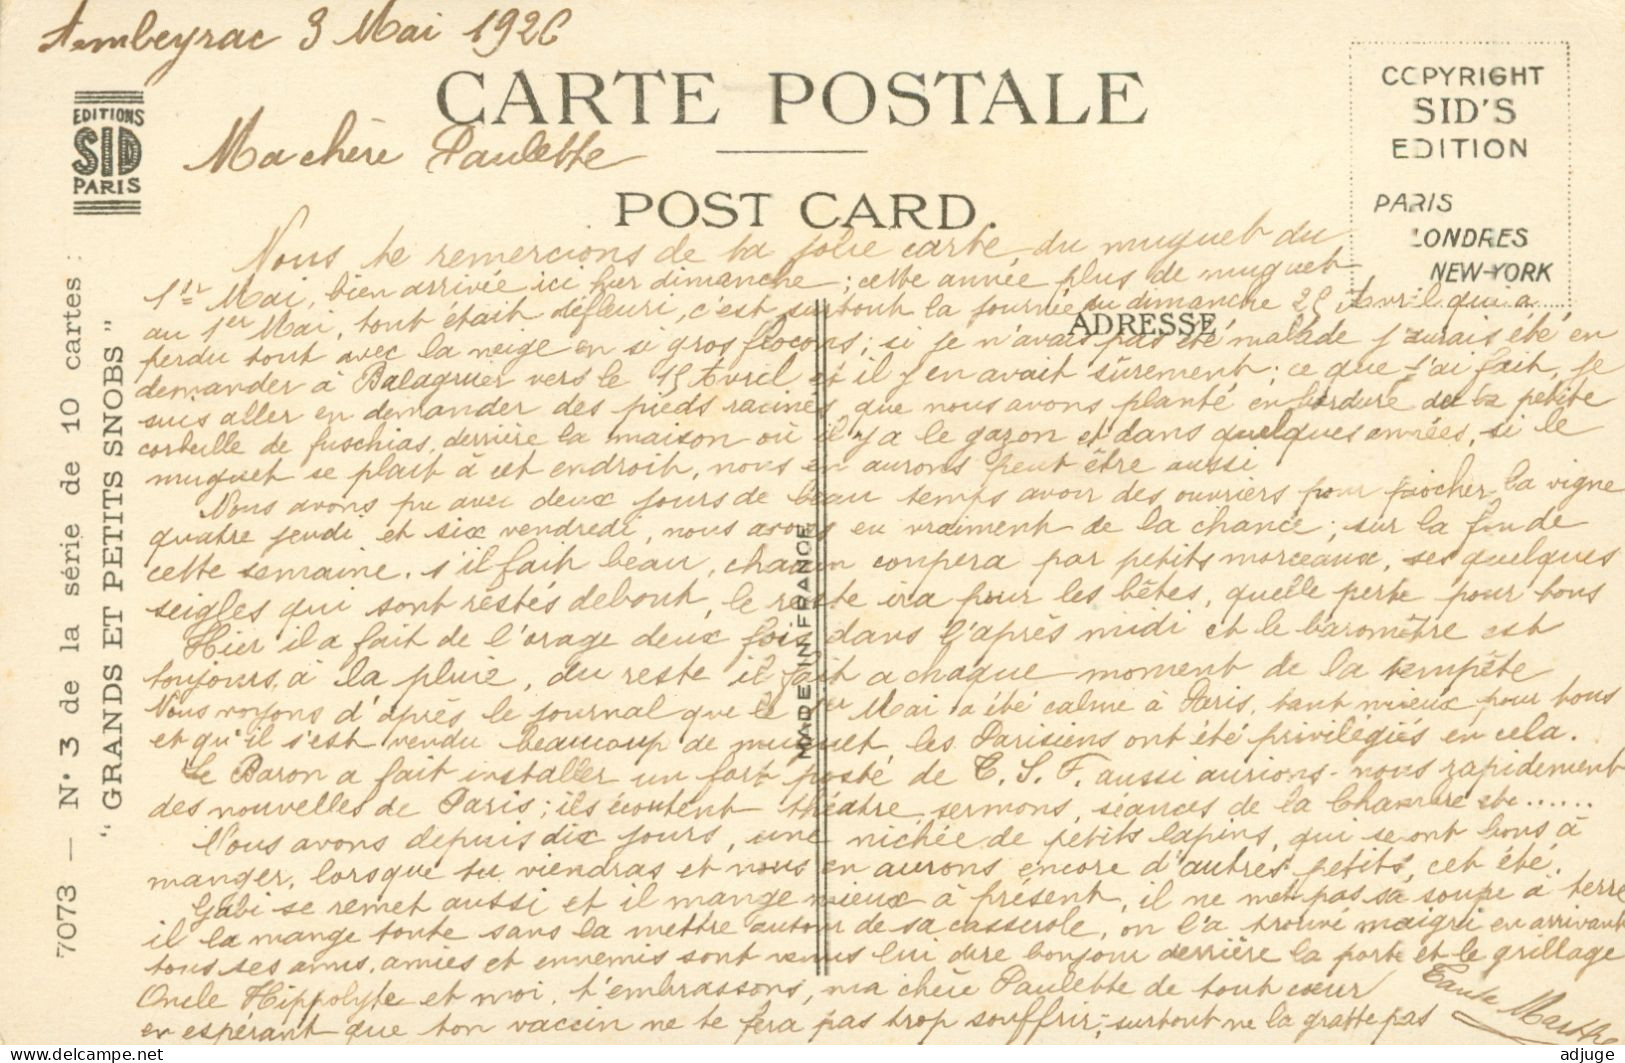 Ambeyrac 3 Mai 1926
CARTE POSTALE
Ma chère Paulette
POST CARD.
EDITIONS
SID
PARIS
COPYRIGHT
SID'S
EDITION
PARIS
LONDRES
NEW-YORK
ADRESSE
MADE IN FRANCE
7073 — N° 3 de la série de 10 cartes :
" GRANDS ET PETITS SNOBS "
Nous te remercions de ta jolie carte du muguet du
1er Mai, bien arrivée ici hier dimanche ; cette année plus de muguet
au 1er Mai, tout était défleuri, c'est surtout la journée du dimanche 25 Avril qui a
perdu tout avec la neige en si gros flocons ; si je n'avais pas été malade j'aurais été en
demander à Balaguier vers le 15 Avril et il y en avait sûrement ; ce que j'ai fait, je
suis aller en demander des pieds racinés que nous avons planté en bordure de la petite
corbeille de fuschias, derrière la maison où il y a le gazon et dans quelques années, si le
muguet se plait à cet endroit, nous en aurons peut être aussi
Nous avons pu avec deux jours de beau temps avoir des ouvriers pour piocher la vigne
quatre jeudi et six vendredi, nous avons eu vraiment de la chance ; sur la fin de
cette semaine, s'il fait beau, chacun coupera par petits morceaux, ses quelques
seigles qui sont restés debout, le reste ira pour les bêtes, quelle perte pour tous
Hier il a fait de l'orage deux fois dans l'après midi et le baromètre est
toujours à la pluie, du reste il fait a chaque moment de la tempête
Nous voyons d'après le journal que le 1er Mai a été calme à Paris, tant mieux pour tous
et qu'il s'est vendu beaucoup de muguet les Parisiens ont été privilégiés en cela.
Le Baron a fait installer un fort posté de T. S. F. aussi aurions-nous rapidement
des nouvelles de Paris ; ils écoutent théatre, sermons, séances de la Chambre etc......
Nous avons depuis dix jours, une nichée de petits lapins, qui seront bons à
manger, lorsque tu viendras et nous en aurons encore d'autres petits, cet été.
Gabi se remet aussi et il mange mieux à présent, il ne met pas sa soupe à terre
il la mange toute sans la mettre autour de sa casserole, on l'a trouvé maigri en arrivant
tous ses amis, amies et ennemis sont venus lui dire bonjour derrière la porte et le grillage
Oncle Hippolyte et moi, t'embrassons, ma chère Paulette de tout cœur
en espérant que ton vaccin ne te fera pas trop souffrir ; surtout ne la gratte pas
Tante Marthe
adjuge